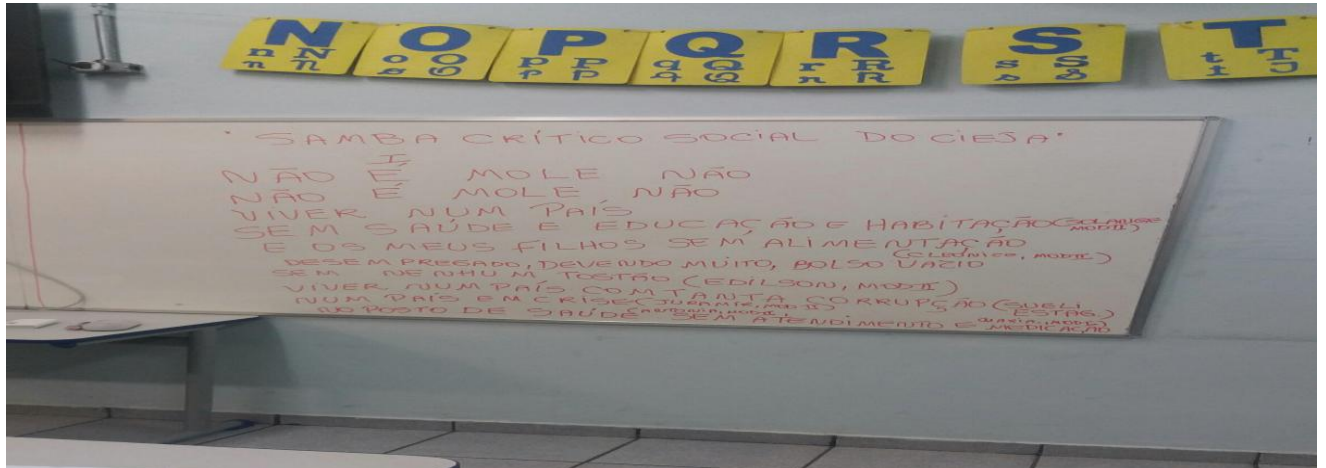 N O P Q R S T
n N o O p P q Q r R s S t T
n N o O p P q Q r R s S t T
"SAMBA CRÍTICO SOCIAL DO CIEJA"
I
NÃO É MOLE NÃO
NÃO É MOLE NÃO
VIVER NUM PAÍS
SEM SAÚDE E EDUCAÇÃO E HABITAÇÃO (SOLANGE MODII)
E OS MEUS FILHOS SEM ALIMENTAÇÃO
(CLEONICE, MODII)
DESEMPREGADO, DEVENDO MUITO, BOLSO VAZIO
SEM NENHUM TOSTÃO (EDILSON, MODII)
VIVER NUM PAÍS COM TANTA CORRUPÇÃO (SUELI ESTAG.)
NUM PAÍS EM CRISE
NO POSTO DE SAÚDE SEM ATENDIMENTO E MEDICAÇÃO